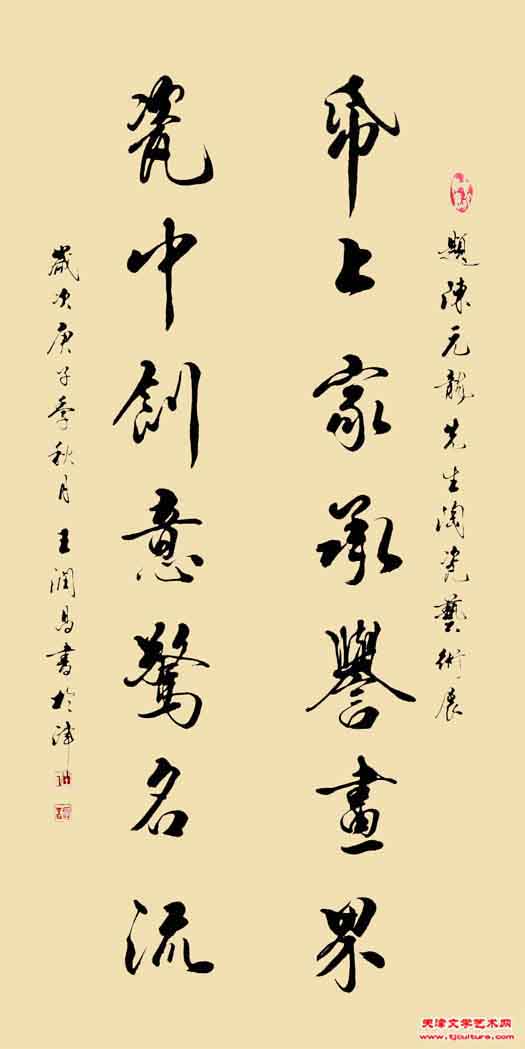 題陳元龍先生陶瓷藝術展
帋上家承譽畫界
瓷中創意驚名流
歲次庚子季秋月王潤昌書於津
天津文学艺术网
www.tjculture.com